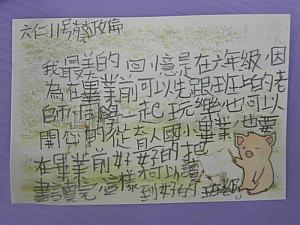 六仁11号蔡政
我最美的回憶是在六年級,因
為在畢業前可以先跟班上的老
師、同學一起玩樂,也可以
開心的從育人國小畢業,也要
在畢業前好好的把
書讀完,這樣可以讀
到好的班級